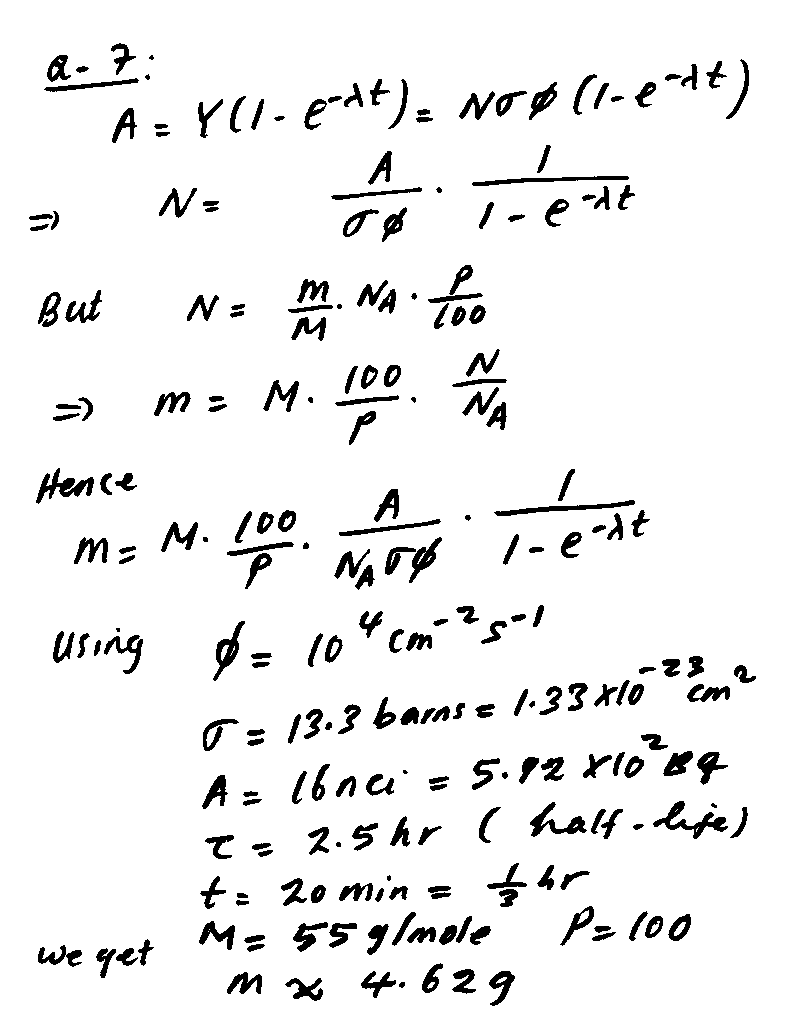 Q-7:
A = Y(1 - e^{-λt}) = Nσφ (1 - e^{-λt})
⇒ N = \frac{A}{σφ} · \frac{1}{1 - e^{-λt}}
But N = \frac{m}{M} · N_A · \frac{P}{100}
⇒ m = M · \frac{100}{P} · \frac{N}{N_A}
Hence
m = M · \frac{100}{P} · \frac{A}{N_A σφ} · \frac{1}{1 - e^{-λt}}
Using φ = 10^4 cm^{-2} s^{-1}
σ = 13.3 barns = 1.33 x10^{-23} cm^2
A = 16 nci = 5.92 x10^2 Bq
τ = 2.5 hr ( half-life)
t = 20 min = \frac{1}{3} hr
M = 55 g/mole P = 100
we get
m ≈ 4.62g